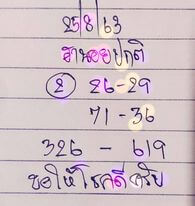 25/8/63
ฮานอยปกติ
② 26-29
71-36
326 - 619
ขอให้โชคดีครับ